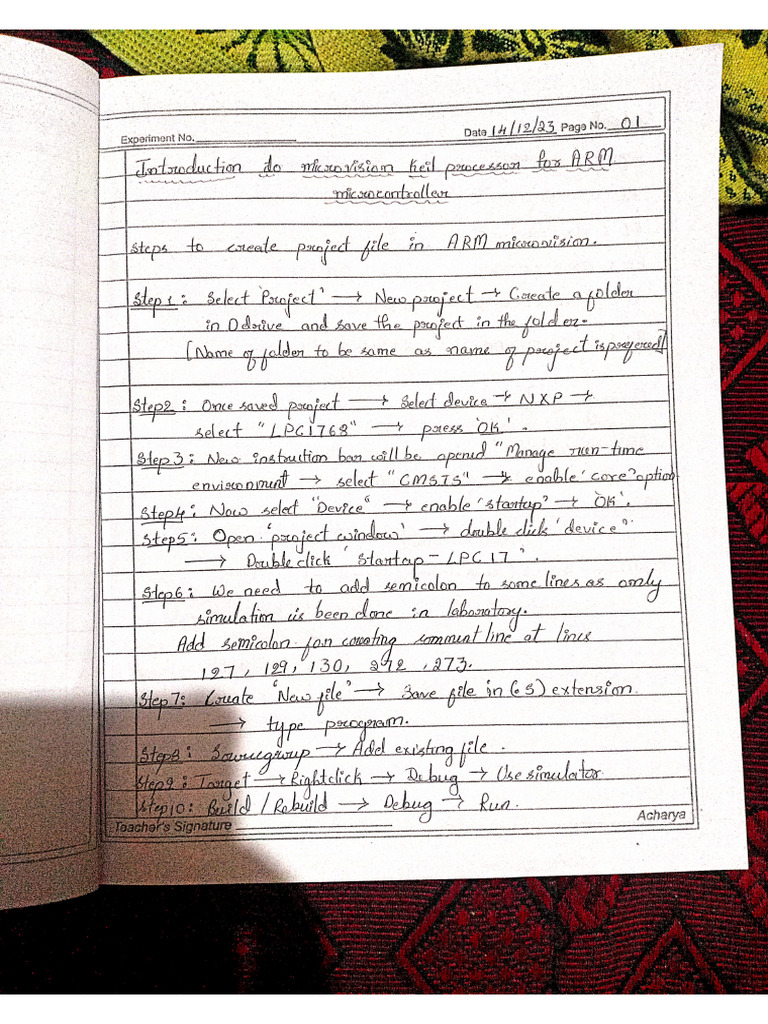 Experiment No.
Date 14/12/23 Page No. 01
Introduction do microvision keil processor for ARM
microcontroller
Steps to create project file in ARM microvision.
Step 1 : Select 'Project' → New project → Create a folder
in D drive and save the project in the folder.
[Name of folder to be same as name of project is prefered]
Step2 : Once saved project → Select device → NXP →
select "LPC1768" → press 'OK'.
Step 3 : New instruction bar will be opened "Manage run-time
environment → select "CMSIS" → enable 'core' option
Step4 : Now select "Device" → enable 'startup' → 'OK'.
Step5 : Open 'project window' → double click 'device'
→ Double click 'Startup - LPC17'.
Step6 : We need to add semicolon to some lines as only
simulation is been done in laboratory.
Add semicolon for creating comment line at lines
127, 129, 130, 272, 273.
Step 7: Create "New file" → Save file in (.S) extension.
→ type program.
Step8 : Sourcegroup → Add existing file.
Step 9 : Target → Rightclick → Debug → Use simulator
Step10 : Build / Rebuild → Debug → Run.
Teacher's Signature
Acharya